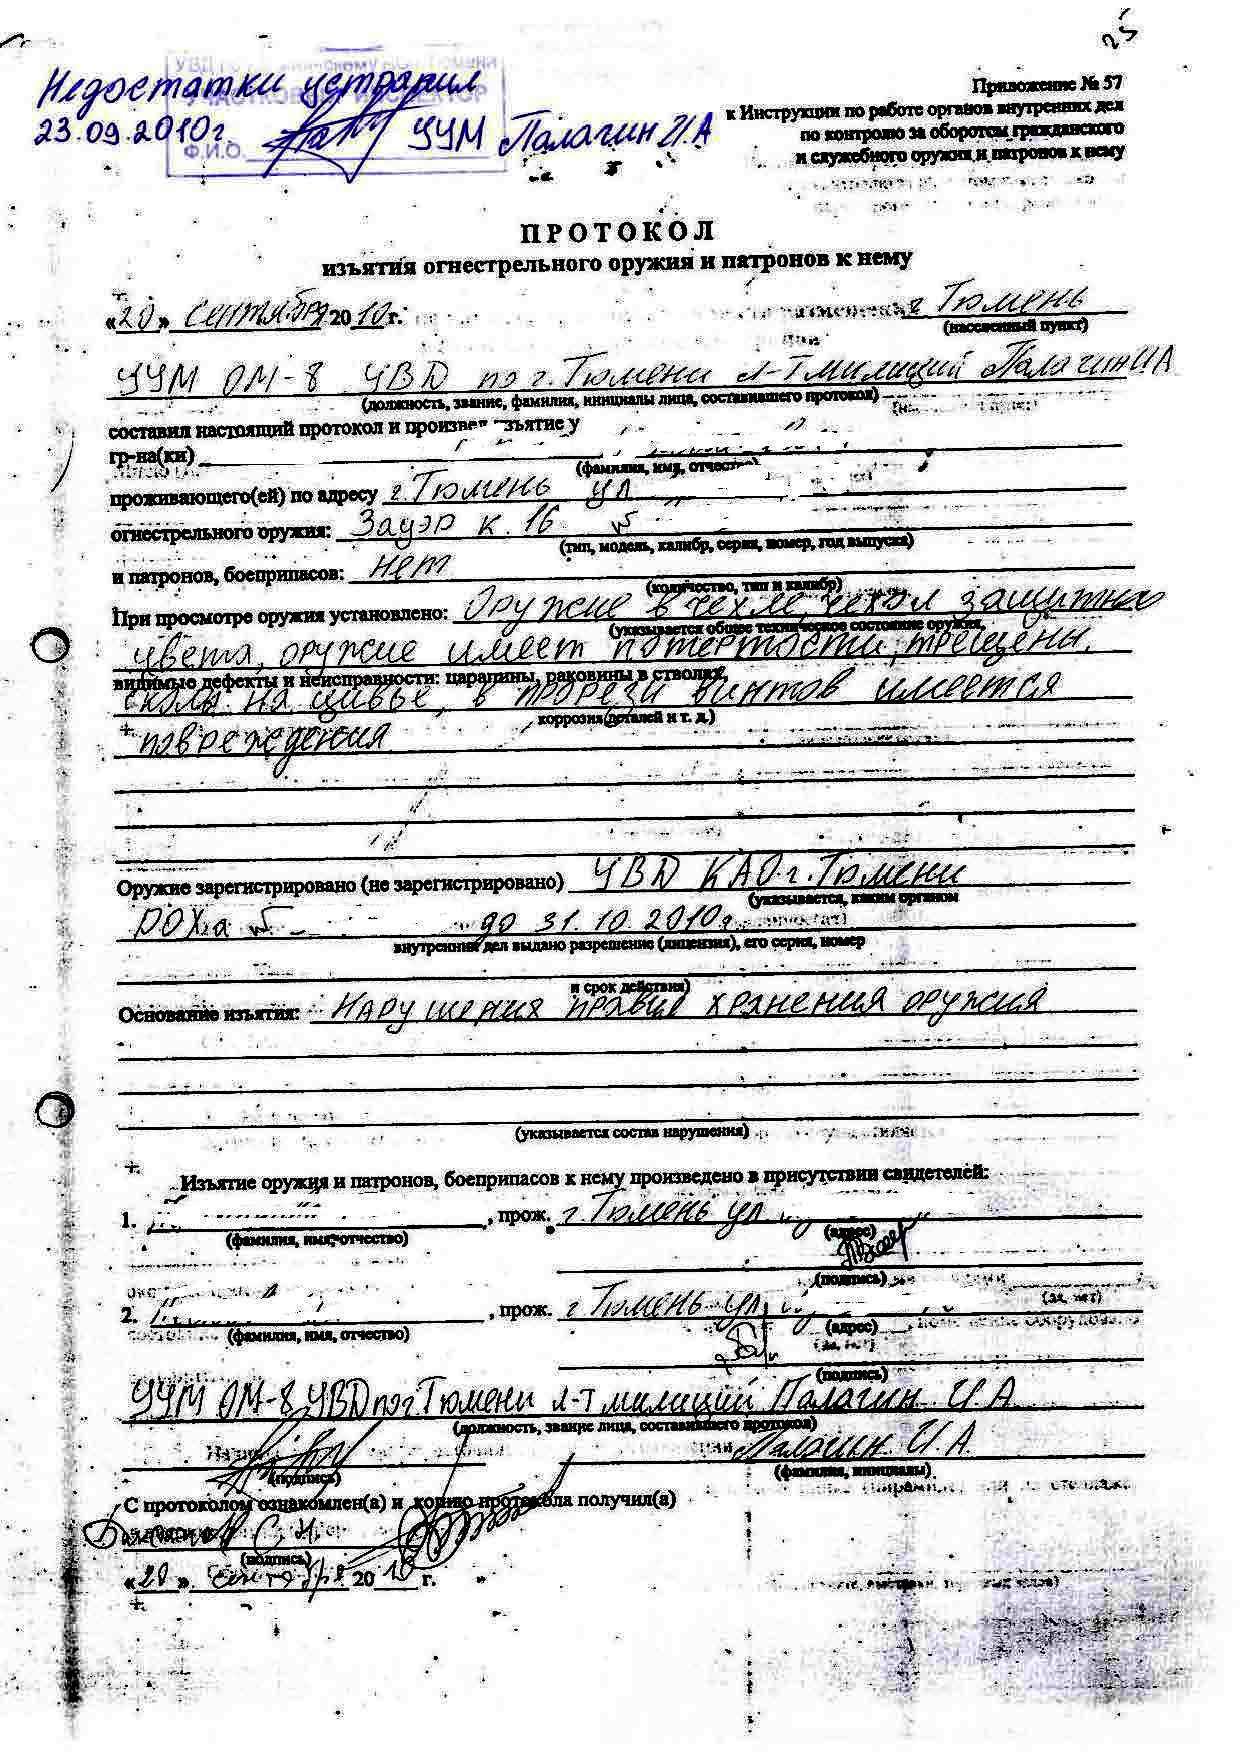 25
УВД по г. Тюмени
УЧАСТКОВЫЙ ИНСПЕКТОР
Ф.И.О.
Недостатки устранил
23.09.2010г. УУМ Палагин И.А
Приложение № 57
к Инструкции по работе органов внутренних дел
по контролю за оборотом гражданского
и служебного оружия и патронов к нему
ПРОТОКОЛ
изъятия огнестрельного оружия и патронов к нему
«20» сентября 2010г. г Тюмень
(населенный пункт)
УУМ ОМ-8 УВД по г.Тюмени л-т милиций Палагин И А
(должность, звание, фамилия, инициалы лица, составившего протокол)
составил настоящий протокол и произвел изъятие у
гр-на(ки)
(фамилия, имя, отчество)
проживающего(ей) по адресу г.Тюмень ул
огнестрельного оружия: Зауэр к. 16 №
(тип, модель, калибр, серия, номер, год выпуска)
и патронов, боеприпасов: нет
(количество, тип и калибр)
При просмотре оружия установлено: Оружие в чехле, чехол защитно
(указывается общее техническое состояние оружия,
цвета, оружие имеет потертости, трещены,
видимые дефекты и неисправности: царапины, раковины в стволах,
сколы на цивье, в прорези винтов имеется
коррозия деталей и т. д.)
повреждения
Оружие зарегистрировано (не зарегистрировано) УВД КАО г.Тюмени
(указывается, каким органом
РОХа № до 31.10.2010г.
внутренних дел выдано разрешение (лицензия), его серия, номер
и срок действия)
Основание изъятия: Нарушения правил хранения оружия
(указывается состав нарушения)
Изъятие оружия и патронов, боеприпасов к нему произведено в присутствии свидетелей:
1. , прож. г.Тюмень ул
(фамилия, имя, отчество) (адрес)
(подпись)
2. , прож. г Тюмень ул
(фамилия, имя, отчество) (адрес)
(подпись)
УУМ ОМ-8 УВД по г.Тюмени л-т милиций Палагин И.А
(должность, звание лица, составившего протокол)
Палагин И.А
(подпись) (фамилия, инициалы)
С протоколом ознакомлен(а) и копию протокола получил(а)
(подпись)
«20» сентября 2010 г.